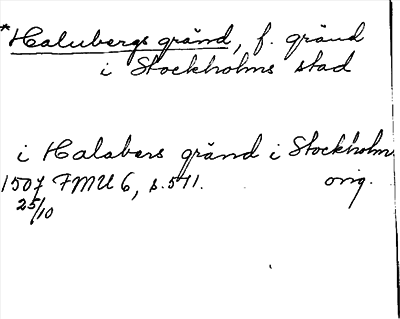 *Halubergs gränd, f. gränd
i Stockholms stad
i Halabers gränd i Stockholm
1507 FMU 6, s. 541. orig.
25/10